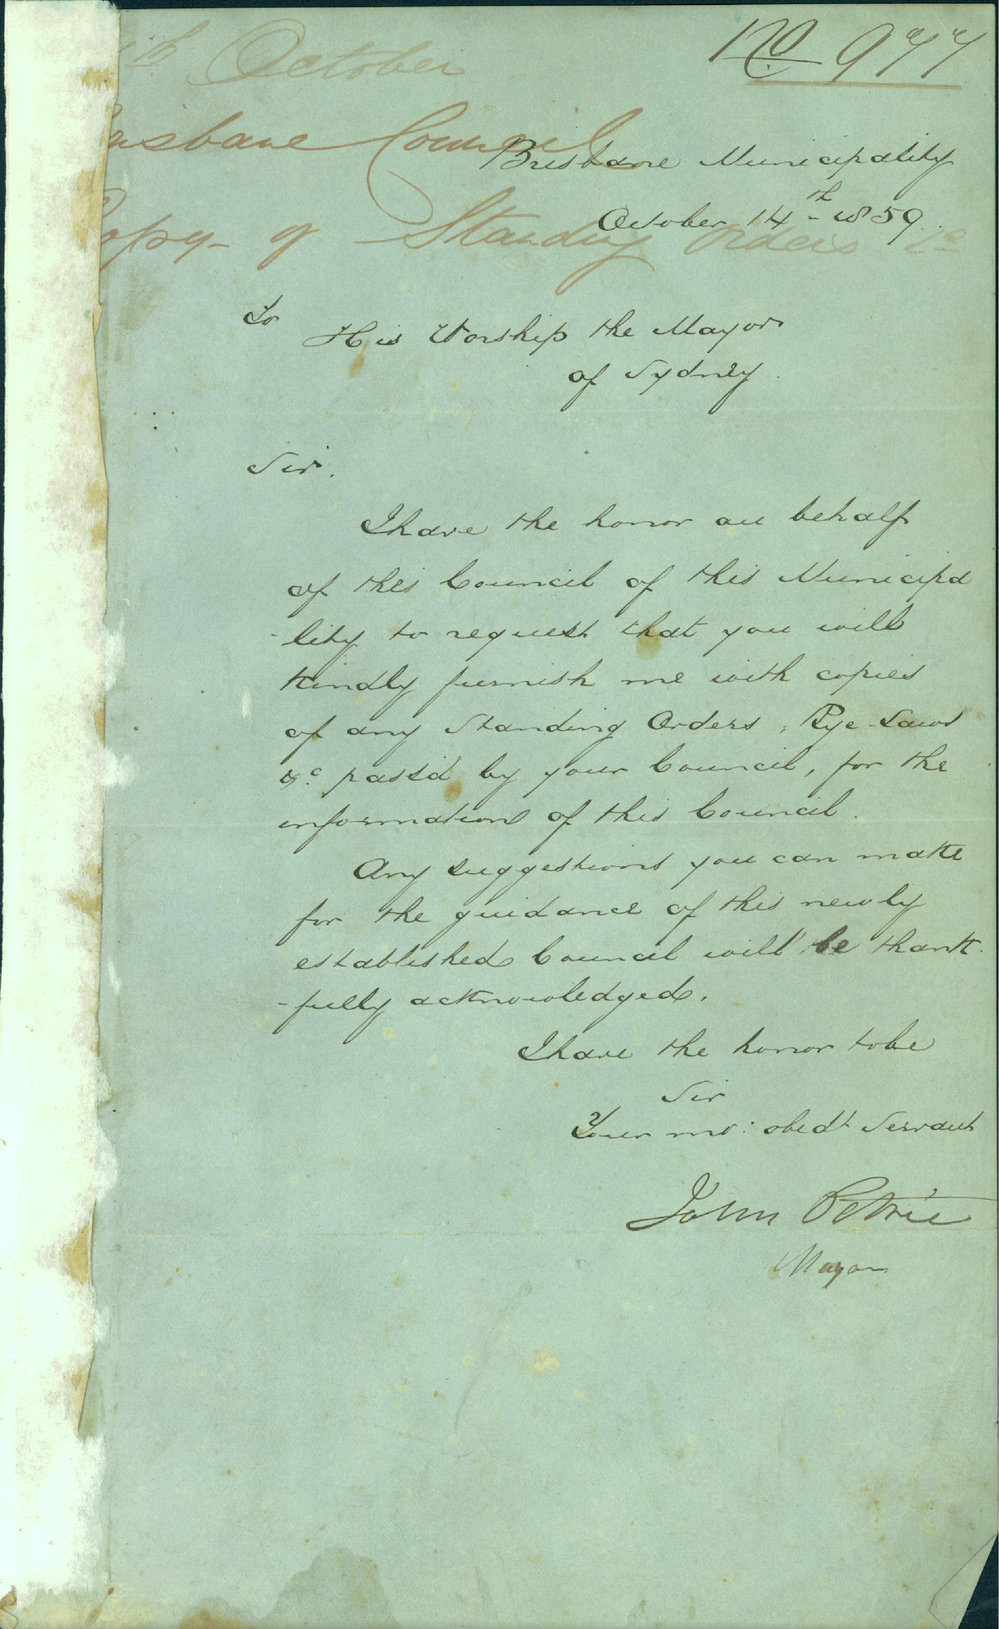 No 977
October
Brisbane Council
Copy of Standing Orders &c
Brisbane Municipality
October 14th 1859
To
His Worship the Mayor
of Sydney.
Sir.
I have the honor on behalf
of this Council of this Municipa
-lity to request that you will
kindly furnish me with copies
of any Standing Orders, Bye-Laws
&c. pass'd by your Council, for the
information of this Council.
Any suggestions you can make
for the guidance of this newly
established Council will be thank
-fully acknowledged.
I have the honor to be
Sir
Your mo: obedt Servant
John Petrie
Mayor